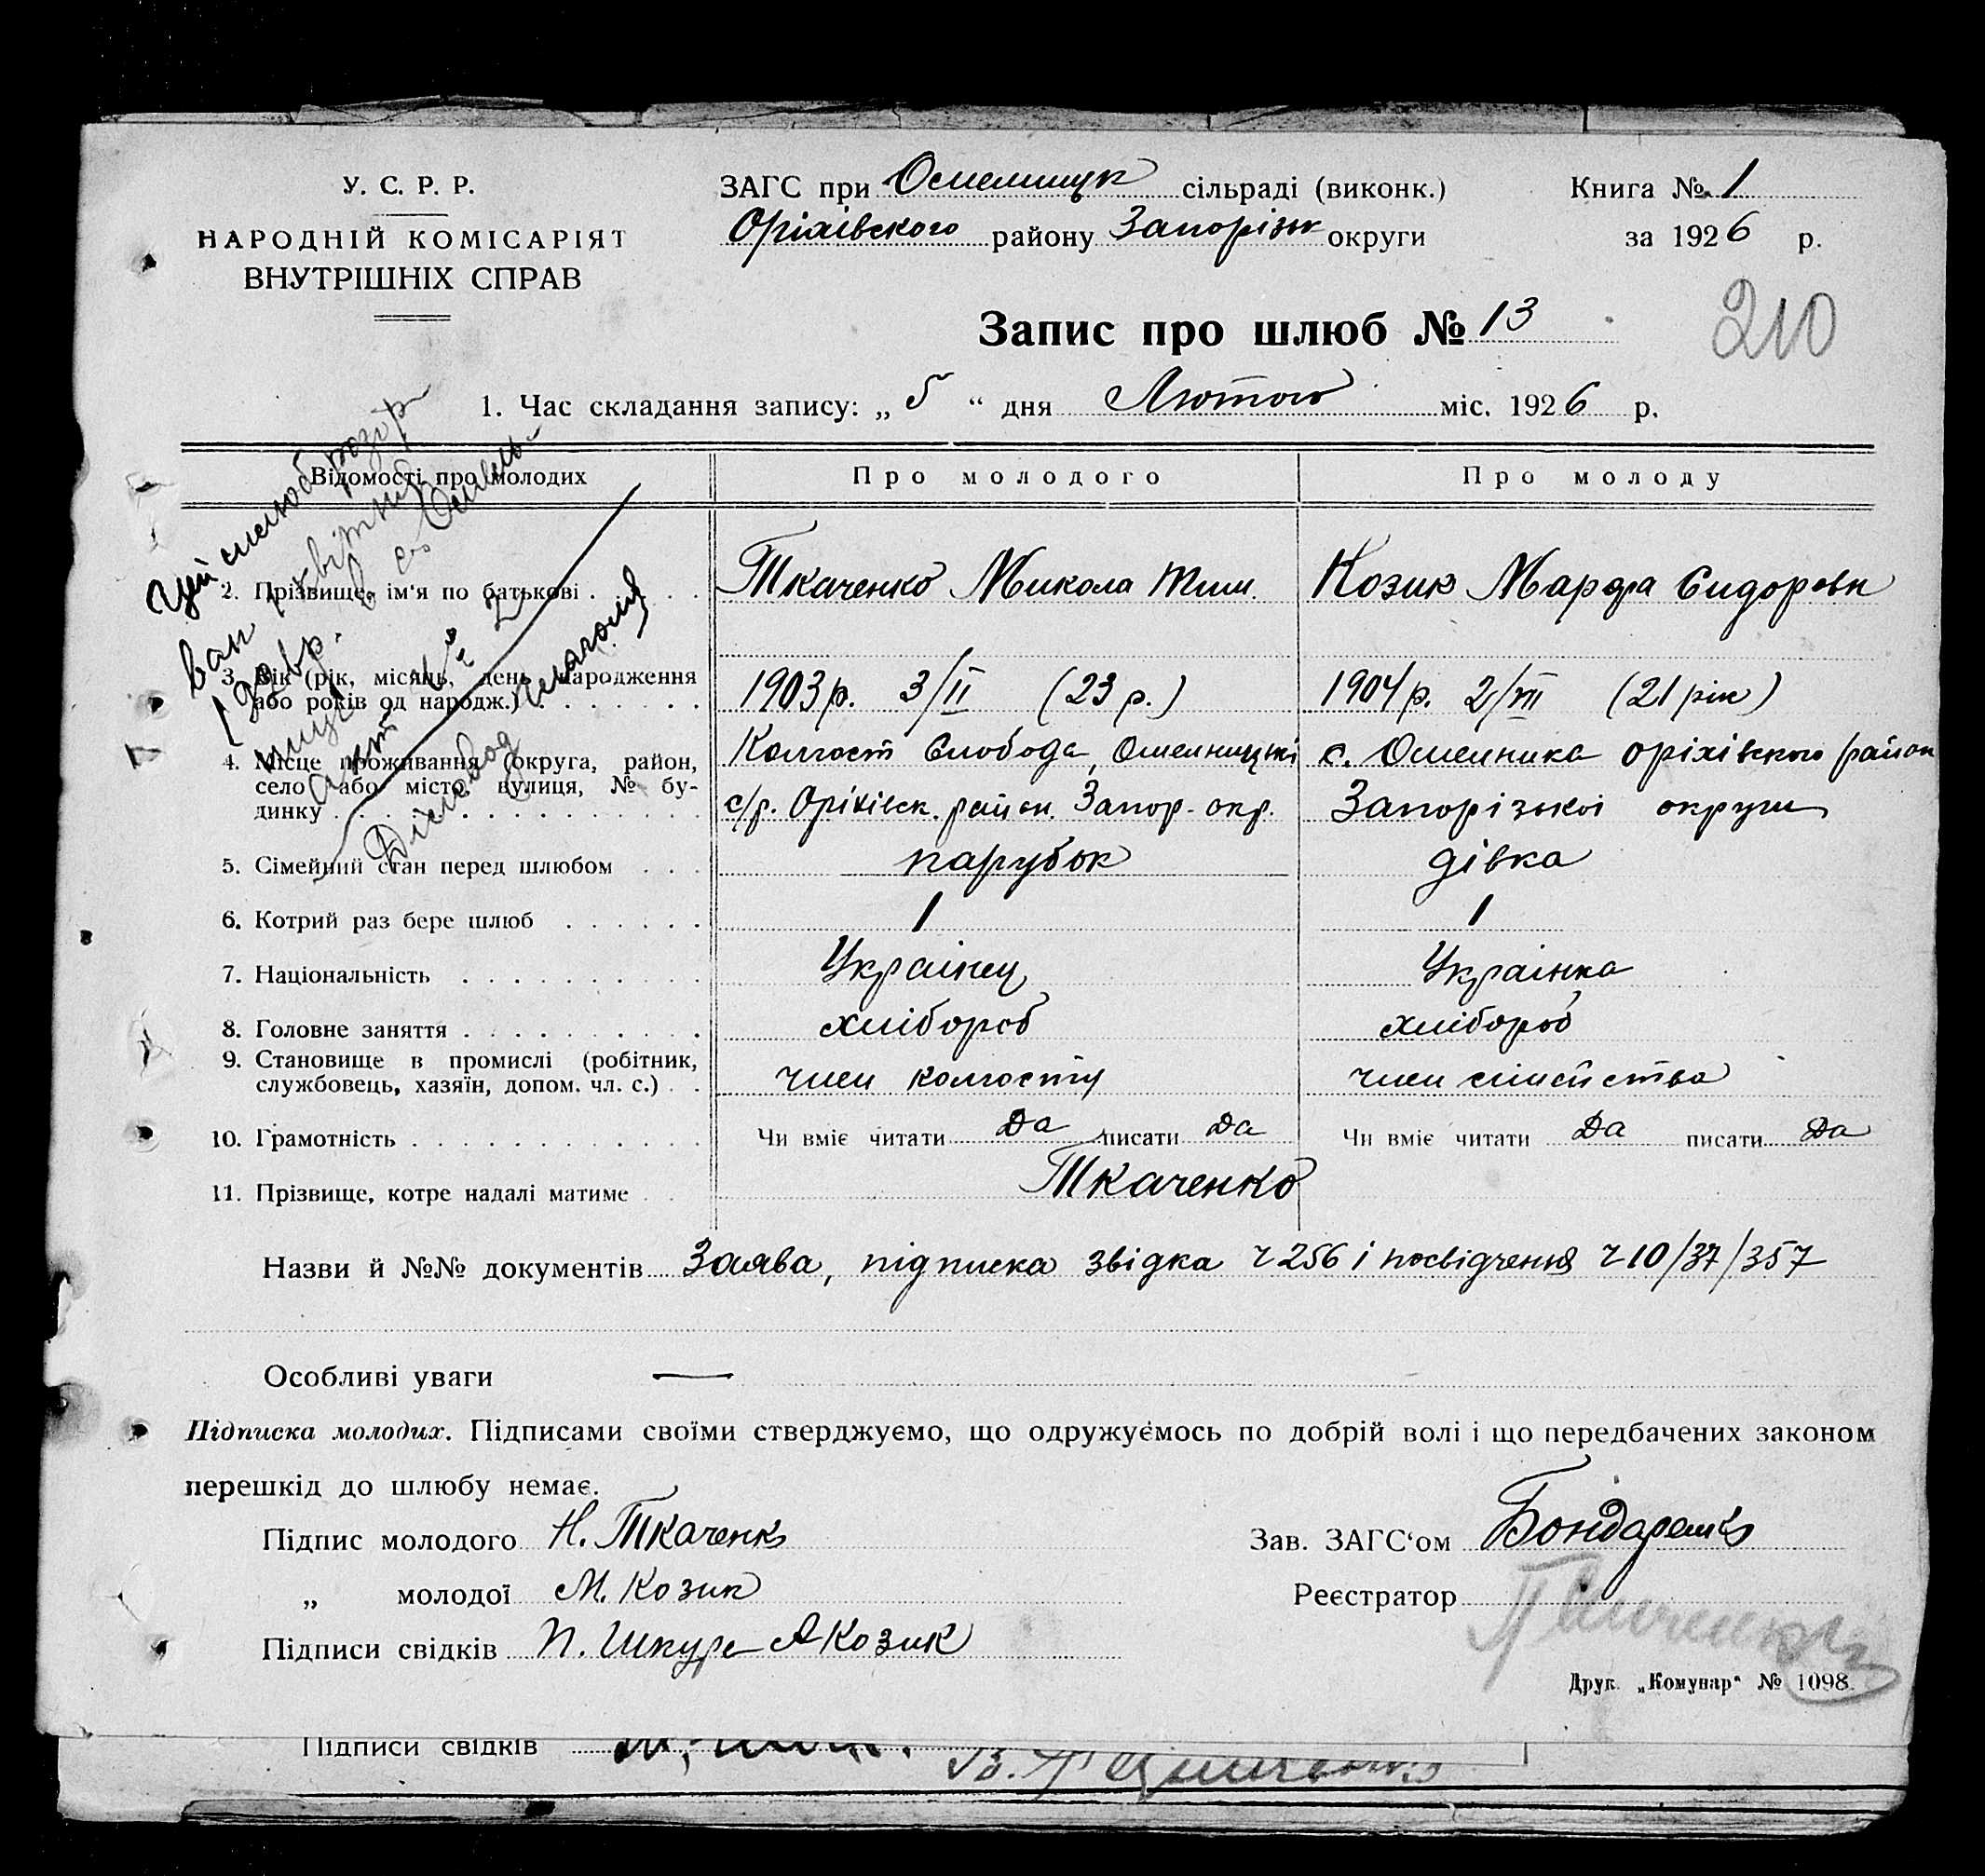 У. С. Р. Р.
НАРОДНІЙ КОМІСАРІЯТ
ВНУТРІШНІХ СПРАВ
ЗАГС при Омельницк сільраді (виконк.)
Оріхівського району Запорізьк округи
Книга № 1
за 1926 р.
Запис про шлюб № 13
210
1. Час складання запису: „ 5 “ дня Лютого міс. 1926 р.
Цей шлюб розір
ван 1 квітня
192 р. в с. Омель-
ниці
акт № 2
Діловод
Відомості про молодих
Про молодого
Про молоду
2. Прізвище, ім'я по батькові
Ткаченко Микола Тим.
Козик Марфа Сидоровн
3. Вік (рік, місяць, день народження
або років од народж.)
1903 р. 3/II (23 р.)
1904 р. 2/VII (21 рік)
4. Місце проживання (округа, район,
село або місто, вулиця, № бу-
динку
Колгосп Слобода, Омельницькі
с/р. Оріхівск. район. Запор. окр.
с. Омельника оріхівского район
Запорізькоі округи
5. Сімейний стан перед шлюбом
парубок
дівка
6. Котрий раз бере шлюб
1
1
7. Національність
Украінец
Украінка
8. Головне заняття
хлібороб
хлібороб
9. Становище в промислі (робітник,
службовець, хазяїн, допом. чл. с.)
член колгоспу
член сімейства
10. Грамотність
Чи вміє читати Да писати Да
Чи вміє читати Да писати Да
11. Прізвище, котре надалі матиме
Ткаченко
Назви й №№ документів Заява, підписка звідка ч 256 і посвідчення ч 10/37/357
Особливі уваги —
Підписка молодих. Підписами своїми стверджуємо, що одружуємось по добрій волі і що передбачених законом
перешкід до шлюбу немає.
Підпис молодого Н. Ткаченко
„ молодої М. Козик
Підписи свідків П. Шкура А Козик
Зав. ЗАГС‘ом Бондаренко
Реєстратор
Друк. „Комунар“ № 1098.
Підписи свідків